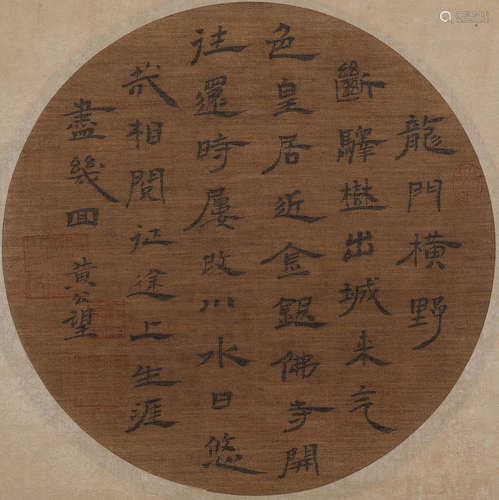 龍門橫野
斷驛樹出城来气
色皇居近金銀佛寺開
往還時屢改川水日悠
哉相閱征途上生涯
盡幾囬 黃公望